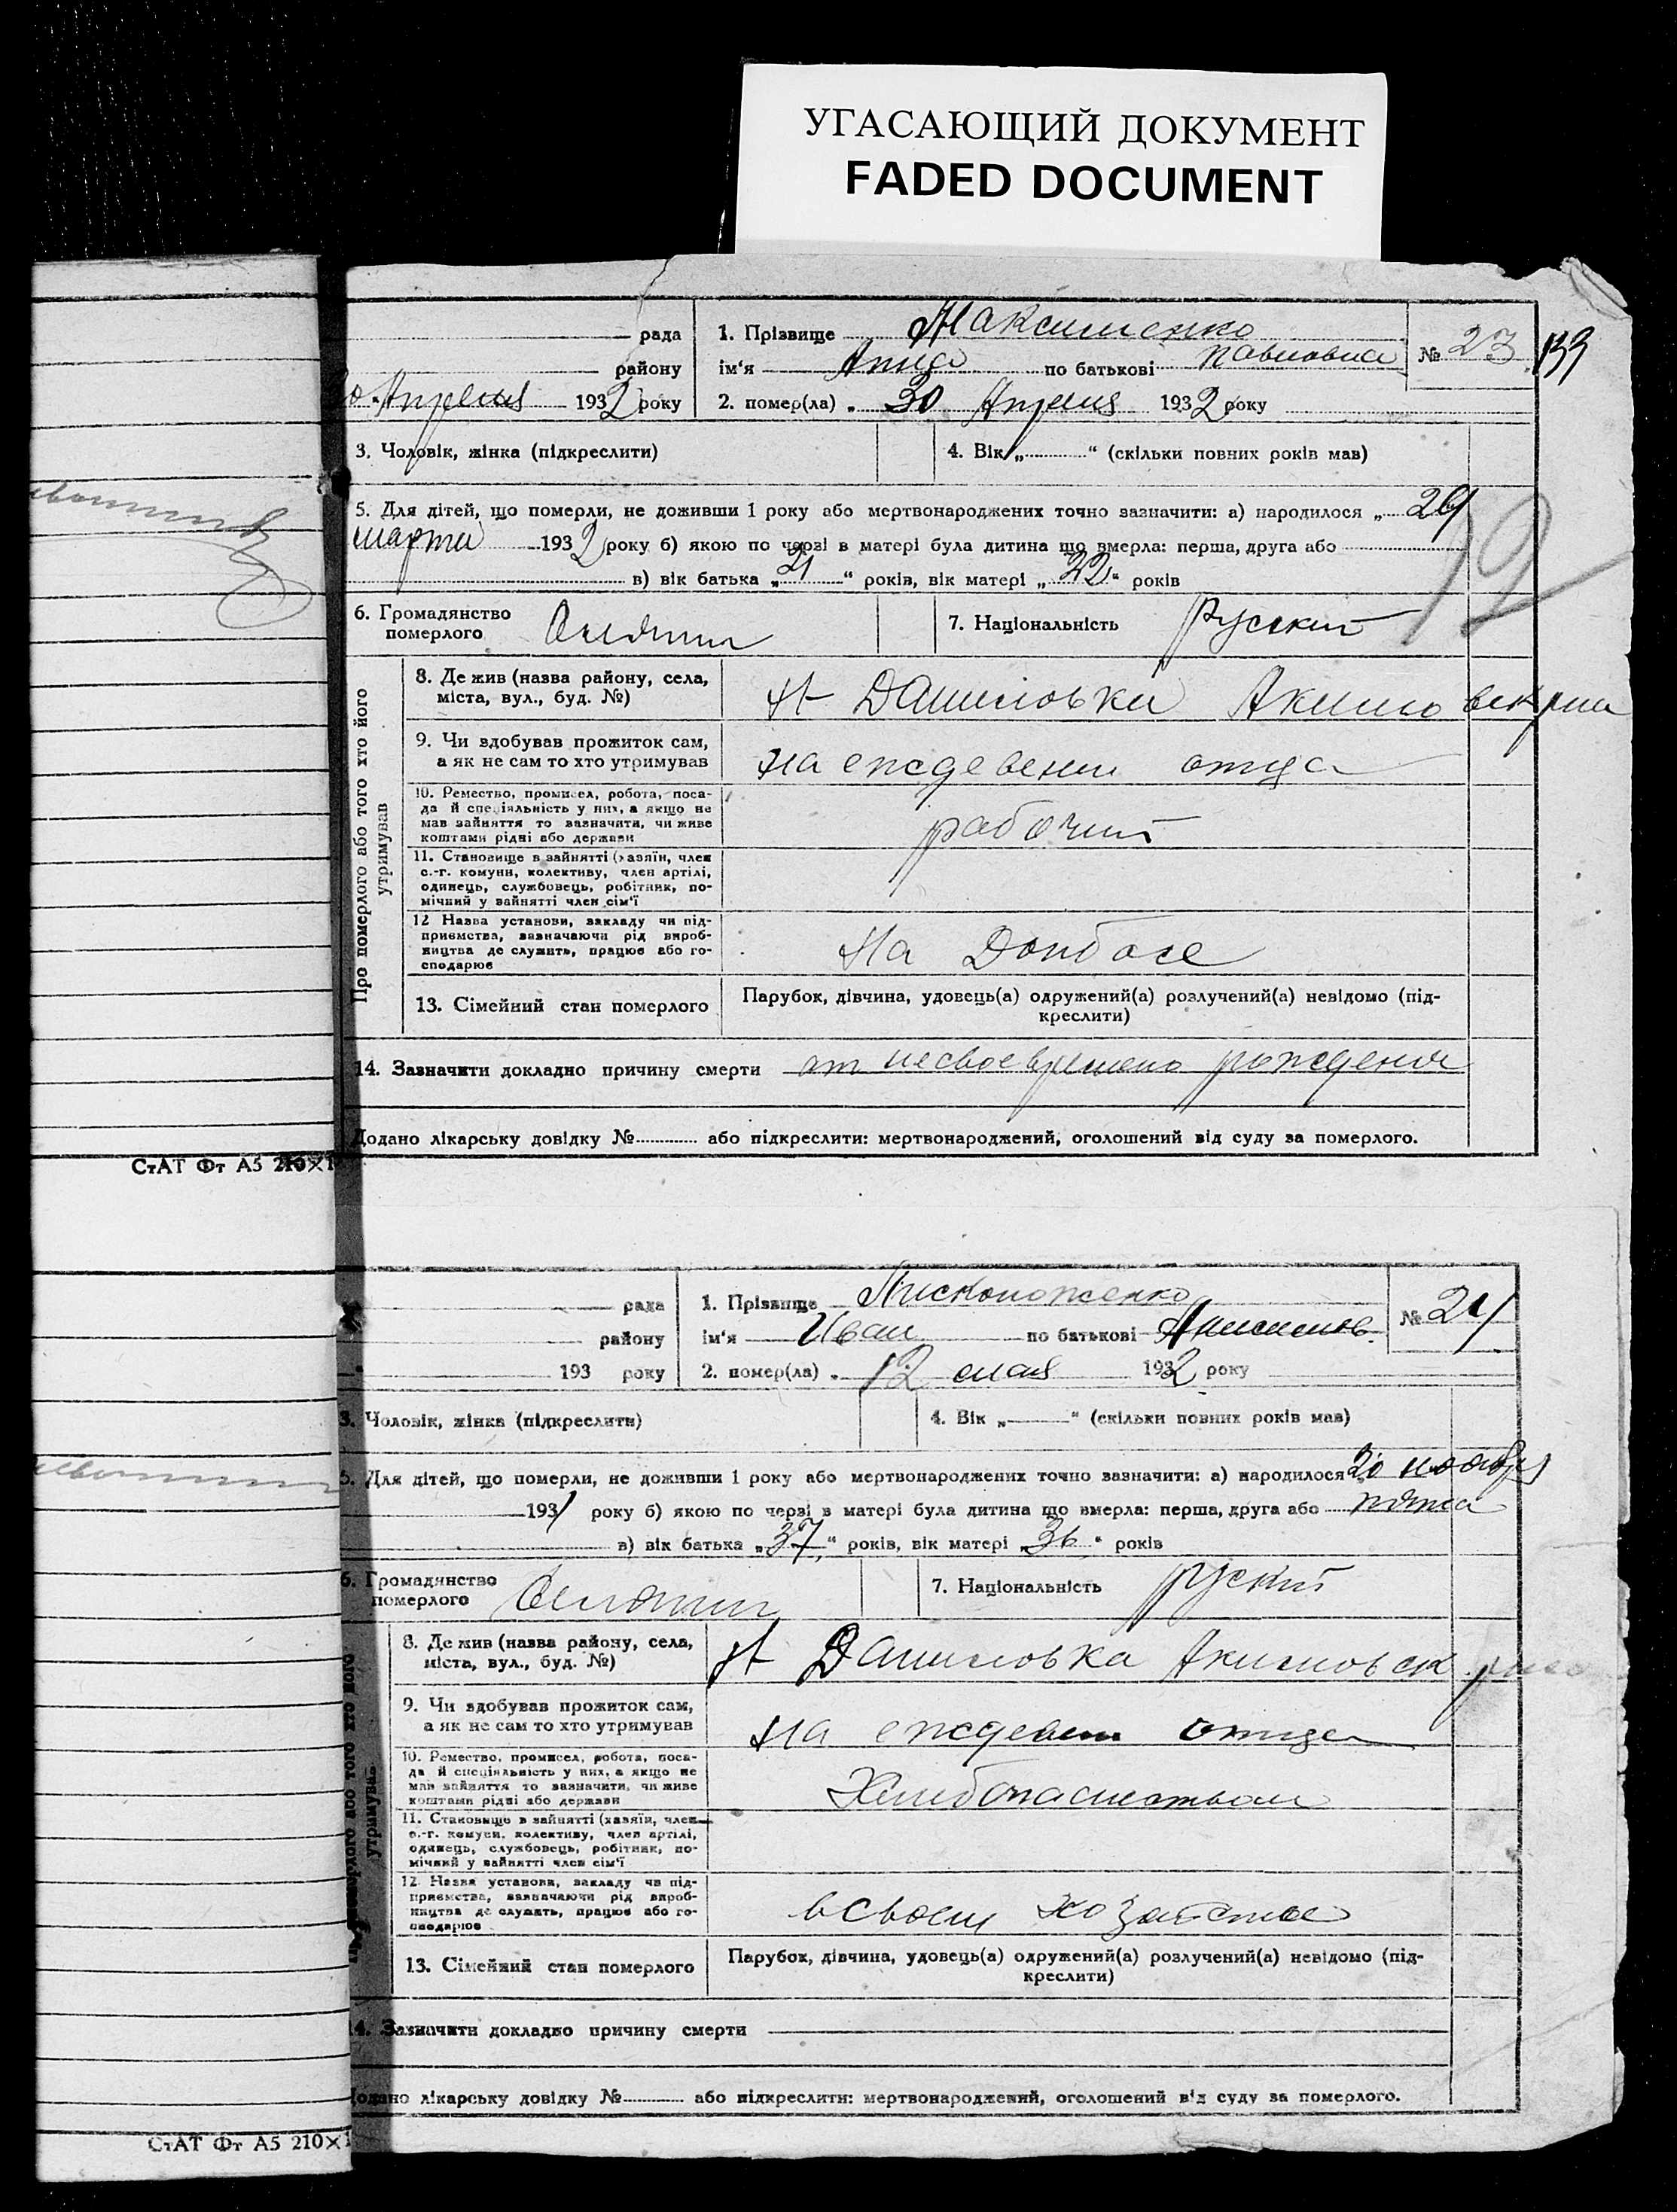 УГАСАЮЩИЙ ДОКУМЕНТ
FADED DOCUMENT
рада
1. Прізвище Максименко
№ 23
133
району
ім'я по батькові Павловна
Апреля 1932 року
2. помер(ла) „ 30 Апреля 1932 року
3. Чоловік, жінка (підкреслити)
4. Вік „ “ (скільки повних років мав)
5. Для дітей, що померли, не доживши 1 року або мертвонароджених точно зазначити: а) народилося „ 29
марта 1932 року б) якою по черзі в матері була дитина що вмерла: перша, друга або
в) вік батька „ 21 “ років, вік матері „ 22 “ років
6. Громадянство
померлого
7. Національність Русский
Про померлого або того хто його
утримував
8. Де жив (назва району, села,
міста, вул., буд. №)
Н Даниловка Акимовск рна
9. Чи здобував прожиток сам,
а як не сам то хто утримував
на еждевени отца
10. Ремество, промисел, робота, поса-
да й спеціяльність у них, а якщо не
мав зайняття то зазначити, чи живе
коштами рідні або держави
рабочий
11. Становище в зайнятті (хазяїн, член
с.-г. комуни, колективу, член артілі,
одинець, службовець, робітник, по-
мічний у зайнятті член сім'ї
12 Назва установи, закладу чи під-
приємства, зазначаючи рід вироб-
ництва де служить, працює або го-
сподарює
На Донбасе
13. Сімейний стан померлого
Парубок, дівчина, удовець(а) одружений(а) розлучений(а) невідомо (під-
креслити)
14. Зазначити докладно причину смерти от несвоевремено рождения
Додано лікарську довідку № або підкреслити: мертвонароджений, оголошений від суду за померлого.
СтАТ Фт А5 210×1
рада
1. Прізвище Пископоженко
№ 24
району
ім'я Иван по батькові
193 року
2. помер(ла) „ 12 мая 1932 року
3. Чоловік, жінка (підкреслити)
4. Вік „ “ (скільки повних років мав)
5. Для дітей, що померли, не доживши 1 року або мертвонароджених точно зазначити: а) народилося 20 ноября
1931 року б) якою по черзі в матері була дитина що вмерла: перша, друга або пятая
в) вік батька „ 37 “ років, вік матері „ 36 “ років
6. Громадянство
померлого
7. Національність руский
утримував
8. Де жив (назва району, села,
міста, вул., буд. №)
Н Даниловка Акимовск рна
9. Чи здобував прожиток сам,
а як не сам то хто утримував
на еждевени отца
10. Ремество, промисел, робота, поса-
да й спеціяльність у них, а якщо не
мав зайняття то зазначити, чи живе
коштами рідні або держави
Хлебопашеством
11. Становище в зайнятті (хазяїн, член
с.-г. комуни, колективу, член артілі,
одинець, службовець, робітник, по-
мічний у зайнятті член сім'ї
12 Назва установи, закладу чи під-
приємства, зазначаючи рід вироб-
ництва де служить, працює або го-
сподарює
в своем хозайстве
13. Сімейний стан померлого
Парубок, дівчина, удовець(а) одружений(а) розлучений(а) невідомо (під-
креслити)
14. Зазначити докладно причину смерти
Додано лікарську довідку № або підкреслити: мертвонароджений, оголошений від суду за померлого.
СтАТ Фт А5 210×1